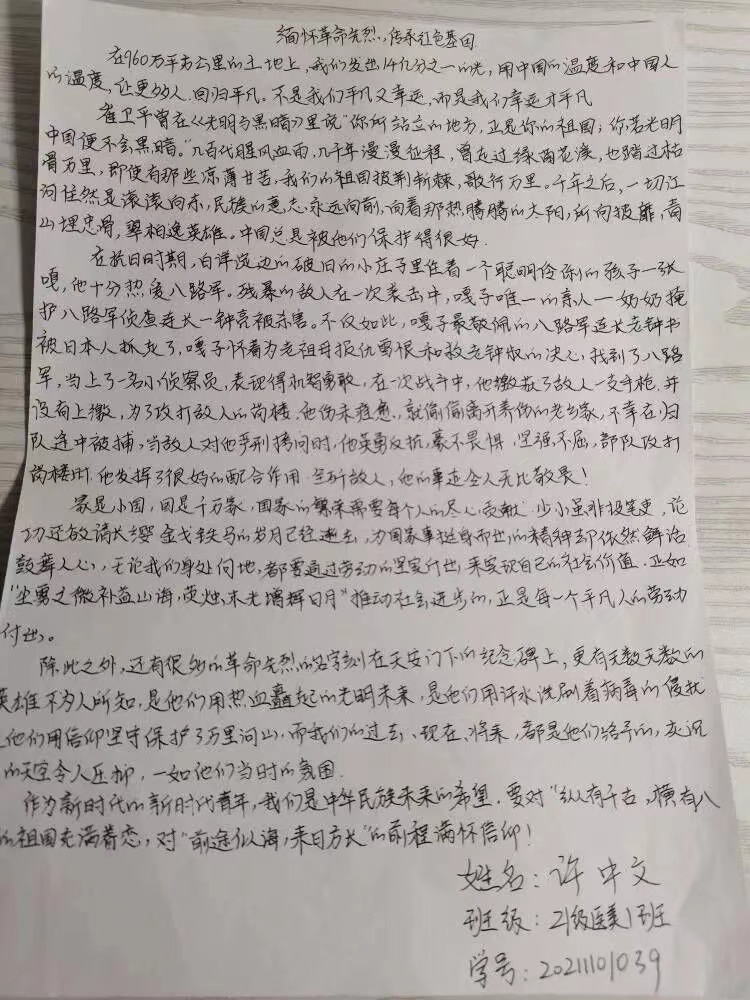 缅怀革命先烈,传承红色基因
在960万平方公里的土地上,我们发出14亿分之一的光,用中国的温度和中国人
的温度,让更多人回归平凡。不是我们平凡又幸运,而是我们幸运才平凡
崔卫平曾在《光明与黑暗》里说"你所站立的地方,正是你的祖国;你若光明
中国便不会黑暗。"几百代腥风血雨,几千年漫漫征程,曾走过绿茵花溪,也踏过枯
骨万里,即使有那些凉薄甘苦,我们的祖国披荆斩棘,歌行万里。千年之后,一切江
河任然是滚滚向东,民族的意志永远向前,向着那热腾腾的太阳,所向披靡,青
山埋忠骨,翠柏逸英雄。中国总是被他们保护得很好.
在抗日时期,白洋淀边的破旧的小庄子里住着一个聪明伶俐的孩子一张
嘎,他十分热爱八路军。残暴的敌人在一次袭击中,嘎子唯一的亲人一奶奶掩
护八路军侦查连长一钟亮被杀害。不仅如此,嘎子最敬佩的八路军连长老钟书
被日本人抓走了,嘎子怀着为老祖母报仇雪恨和救老钟叔的决心,找到了八路
军,当上了一名小侦察员,表现得机智勇敢,在一次战斗中,他缴获了敌人一支手枪,并
没有上缴,为了攻打敌人的岗楼,他伤未痊愈,就偷偷离开养伤的老乡家,不幸在归
队途中被捕,当敌人对他严刑拷问时,他英勇反抗,毫不畏惧,坚强不屈,部队攻打
岗楼时,他发挥了很好的配合作用,全歼敌人,他的事迹令人无比敬畏!
家是小国,国是千万家,国家的繁荣需要每个人的尽心贡献.少小虽非投笔吏,论
功还欲请长缨.金戈铁马的岁月已经逝去,为国家事挺身而出的精神却依然鲜活
鼓舞人心,无论我们身处何地,都要通过劳动的坚实付出,来实现自己的社会价值.正如
"尘雾之微补益山海,荧烛末光增辉日月"推动社会进步的,正是每一个平凡人的劳动
付出。
除此之外,还有很多的革命先烈的名字刻在天安门下的纪念碑上,更有无数无数的
英雄不为人所知,是他们用热血矗起的光明未来,是他们用汗水洗刷着病毒的侵扰
他们用信仰坚守保护了万里河山,而我们的过去、现在、将来,都是他们给予的,灰沉
的天空令人压抑,一如他们当时的氛围.
作为新时代的新时代青年,我们是中华民族未来的希望.要对"纵有千古,横有八
的祖国充满眷恋,对"前途似海,来日方长"的前程满怀信仰!
姓名:许中文
班级:21级医美1班
学号:2021101039